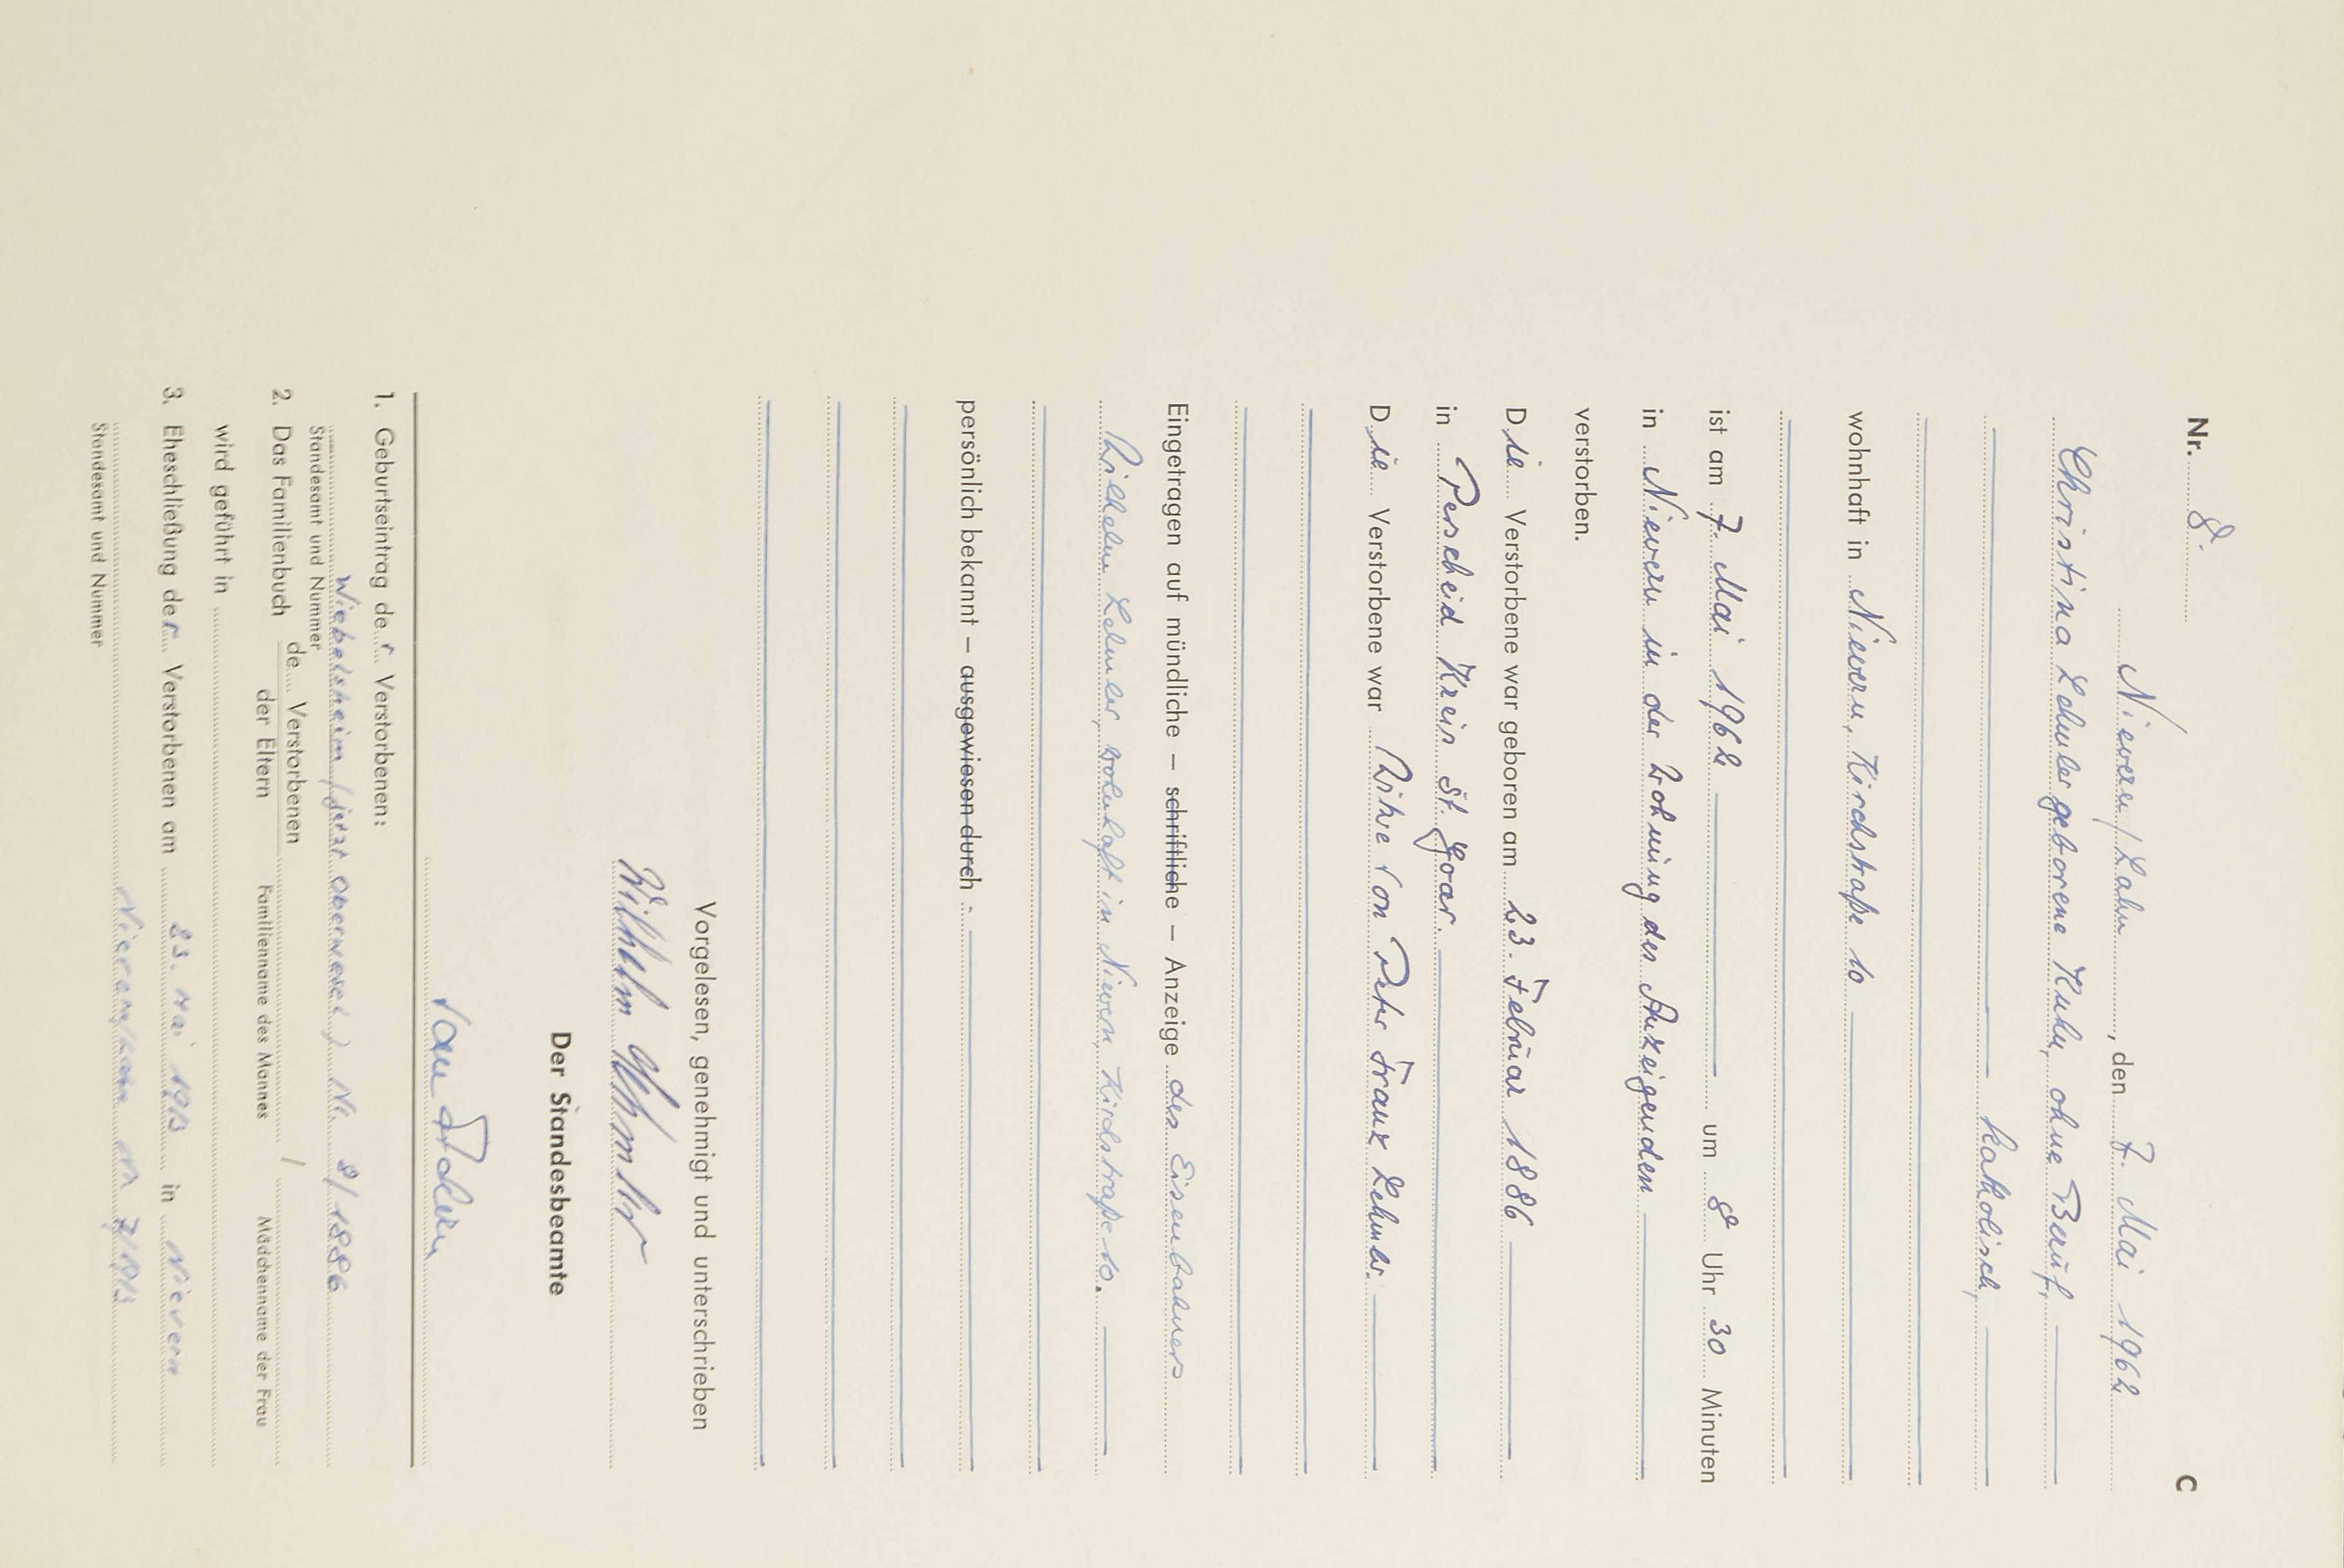 Nr. 8. C
Nievern/Lahn, den 7. Mai 1962
Christina Lehmler geborene Kuhn, ohne Beruf,
katholisch,
wohnhaft in Nievern, Kirchstraße 10
ist am 7. Mai 1962 um 8 Uhr 30 Minuten
in Nievern in der Wohnung des Anzeigenden
verstorben.
Die Verstorbene war geboren am 23. Februar 1886
in Perscheid Kreis St. Goar.
Die Verstorbene war Witwe von Peter Franz Lehmler.
Eingetragen auf mündliche – schriftliche – Anzeige des Eisenbahners
Wilhelm Lehmler, wohnhaft in Nievern, Kirchstraße 10.
persönlich bekannt – ausgewiesen durch -
Vorgelesen, genehmigt und unterschrieben
Wilhelm Lehmler
Der Standesbeamte
1. Geburtseintrag der Verstorbenen:
Wiebelsheim (jetzt Oberwesel) Nr. 8/1886
Standesamt und Nummer
2. Das Familienbuch de Verstorbenen
der Eltern Familienname des Mannes / Mädchenname der Frau
wird geführt in
3. Eheschließung der Verstorbenen am 23. Mai 1913 in Nievern
Nr. 7/1913
Standesamt und Nummer